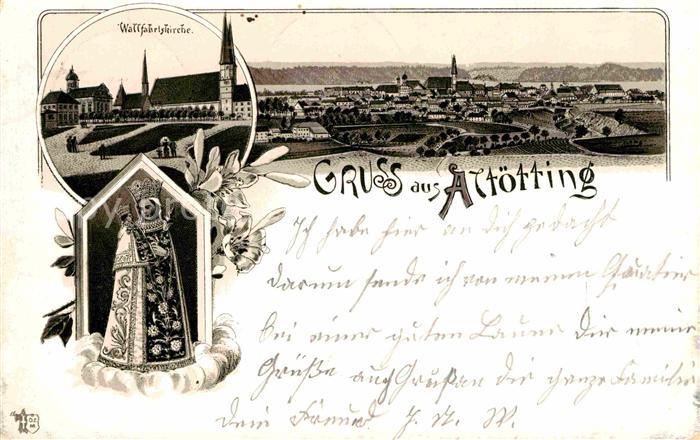 Wallfahrtskirche.
Gruss aus Altötting
Ich habe hier an dich gedacht
darum sende ich von meinen Quatier
bei einer guten Laune Dir meine
Grüße auch die ganze Familie
dein Freund J. N. W.